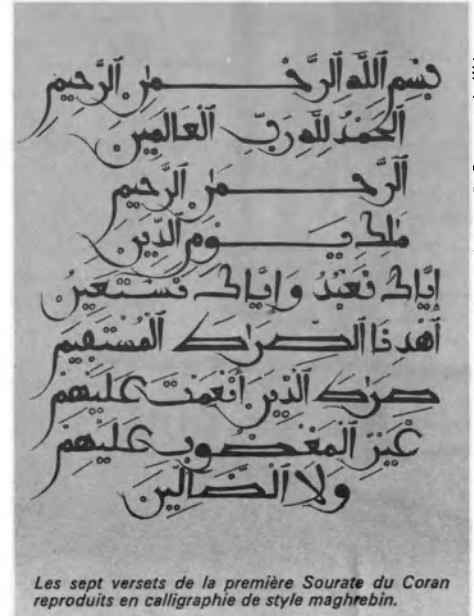 بِسْمِ اللَّهِ الرَّحْمٰنِ الرَّحِيمِ
اَلْحَمْدُ لِلَّهِ رَبِّ الْعَالَمِينَ
الرَّحْمٰنِ الرَّحِيمِ
مَلِكِ يَوْمِ الدِّينِ
إِيَّاكَ نَعْبُدُ وَإِيَّاكَ نَسْتَعِينُ
اَهْدِنَا الصِّرَاطَ الْمُسْتَقِيمَ
صِرَاطَ الَّذِينَ أَنْعَمْتَ عَلَيْهِمْ
غَيْرِ الْمَغْضُوبِ عَلَيْهِمْ
وَلَا الضَّالِّينَ
Les sept versets de la première Sourate du Coran
reproduits en calligraphie de style maghrebin.